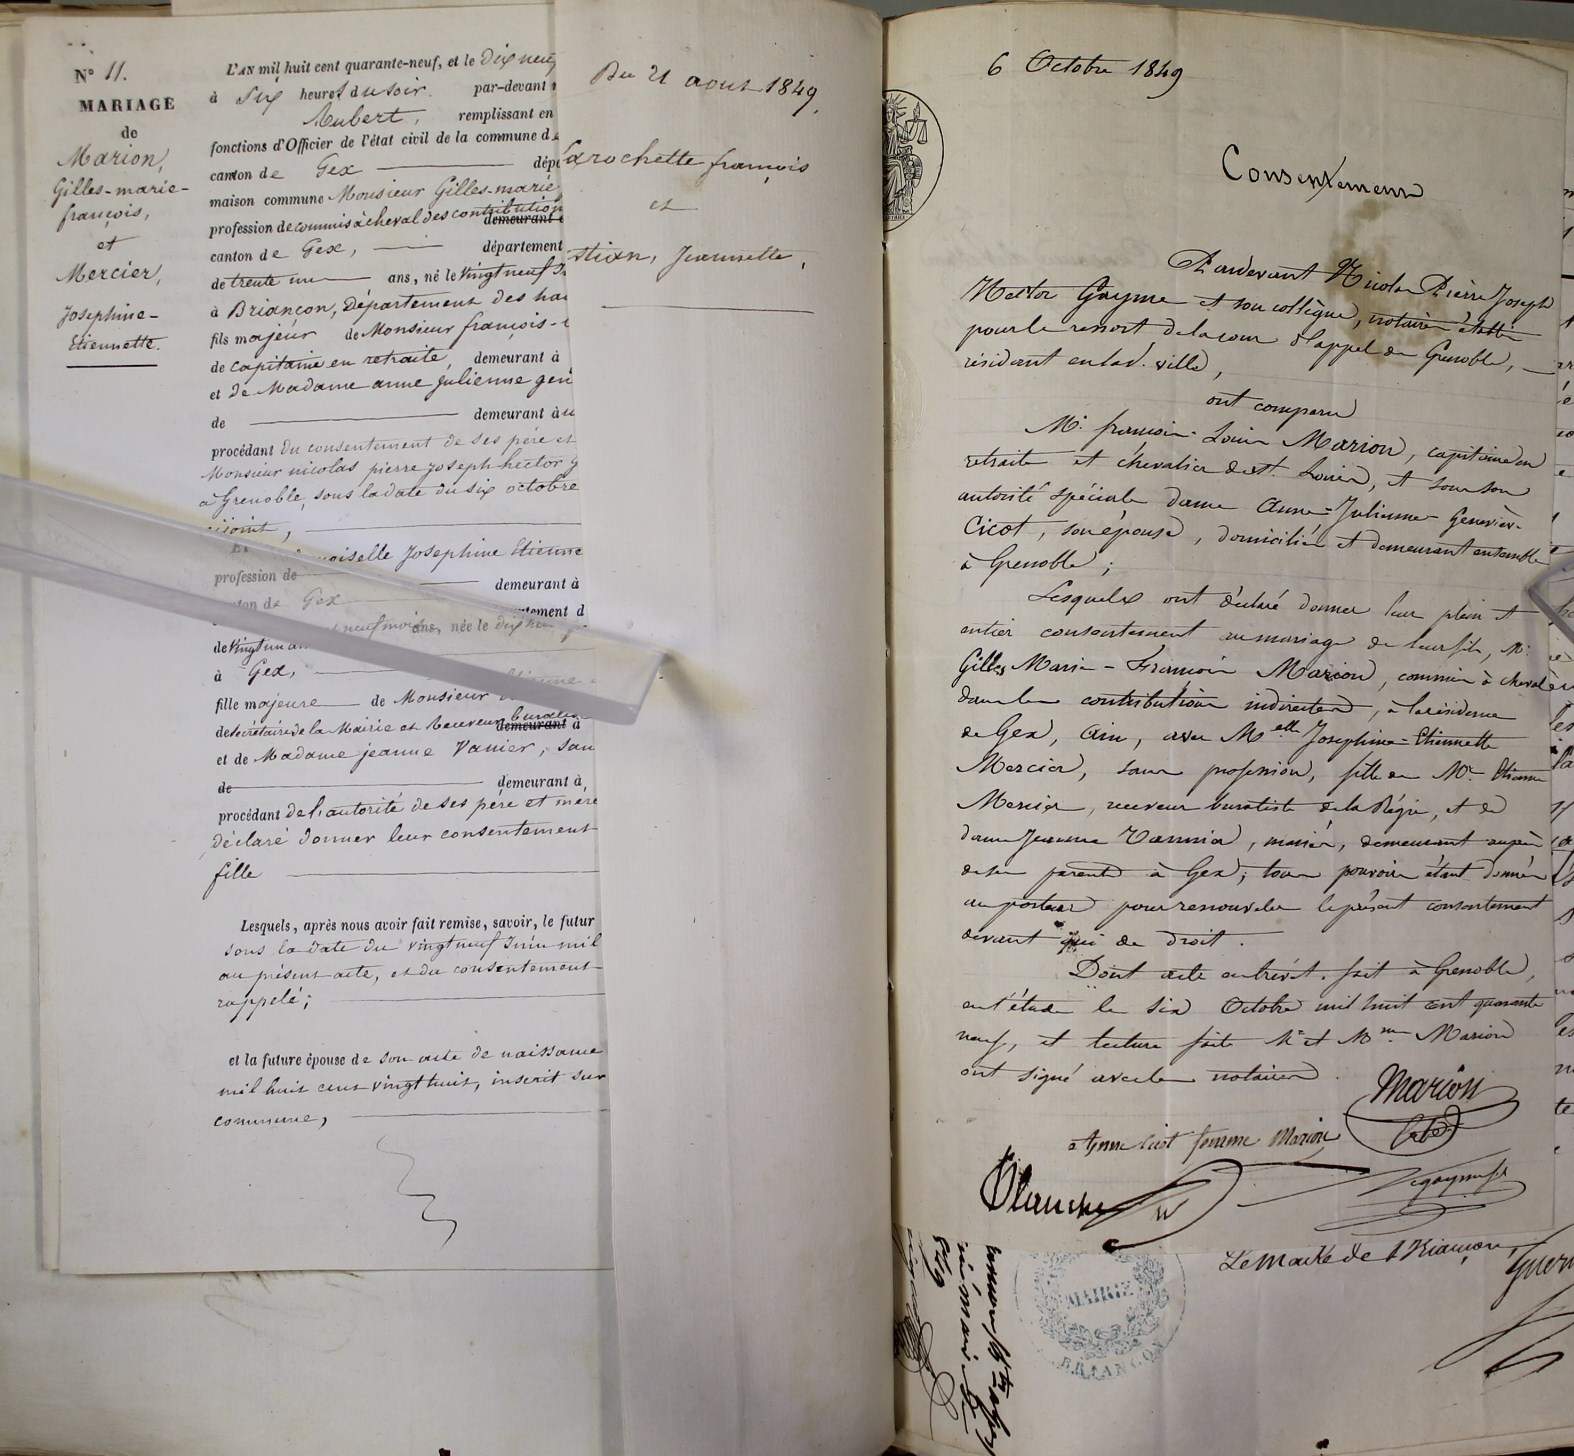 N° 11.
MARIAGE
de
Marion,
Gilles-marie-
françois,
et
Mercier,
Josephine-
Etiennette.
L'AN mil huit cent quarante-neuf, et le Dix neuf
à six heures du soir. par-devant
Aubert, remplissant en
fonctions d'Officier de l'état civil de la commune de
canton de Gex
maison commune Monsieur Gilles-marie
profession de commis à cheval des contribution demeurant
canton de Gex, département
de trente un ans, né le vingt neuf
à Briançon, Département des hau
fils majeur de Monsieur françois-
de capitaine en retraite, demeurant à
et de Madame anne julienne gen
de demeurant à
procédant du consentement de ses père et
Monsieur nicolas pierre joseph hector g
à Grenoble, sous la date du six octobre
oiselle Josephine Etienne
profession de demeurant à
Gex
neuf mois ans, née le dix
de Vingt un an
à Gex,
fille majeure de Monsieur
de secrétaire de la Mairie et Receveur buraliste demeurant à
et de Madame jeanne Vanier, san
de demeurant à
procédant de l'autorité de ses père et mère
déclaré donner leur consentement
fille
Lesquels, après nous avoir fait remise, savoir, le futur
sous la date du vingt neuf mil
au présent acte, et du consentement
rappelé;
et la future épouse de son acte de naissance
mil huit cent vingt huit, inscrit sur
commune,
Du 21 aout 1849,
Larochette françois
et
stian, Jeannette,
6 Octobre 1849
Consentement
Pardevant Nicolas Pierre Joseph
Hector Gayme et son collègue, notaires établis
pour le ressort de la cour d'appel de Grenoble,
résidant en lad. ville,
ont comparu
Mr. françois-Louis Marion, capitaine en
retraite et chevalier de St. Louis, et sous son
autorité spéciale dame Anne-Julienne Geneviève-
Cicot, son épouse, domiciliés et demeurant ensemble
à Grenoble;
Lesquels ont déclaré donner leur plein et
entier consentement au mariage de leur fils, Mr.
Gilles Marie-François Marion, commis à cheval
dans les contributions indirectes, à la résidence
de Gex, Ain, avec Melle Josephine-Etiennette
Mercier, sans profession, fille de Mr. Etienne
Mercier, receveur buraliste de la Régie, et de
dame Jeanne Vannier, mariés, demeurant auprès
de ses parents à Gex; tous pouvoirs étant donnés
au porteur pour renouveler le présent consentement
devant qui de droit.
Dont acte en brévet. fait à Grenoble,
en l'étude le six Octobre mil huit cent quarante
neuf, et lecture faite Mr et Mme Marion
ont signé avec les notaires.
Marion
Anne Cicot femme Marion
Blanchet
Hgayme
Le Maire de Briançon,
MAIRIE
BRIANÇON